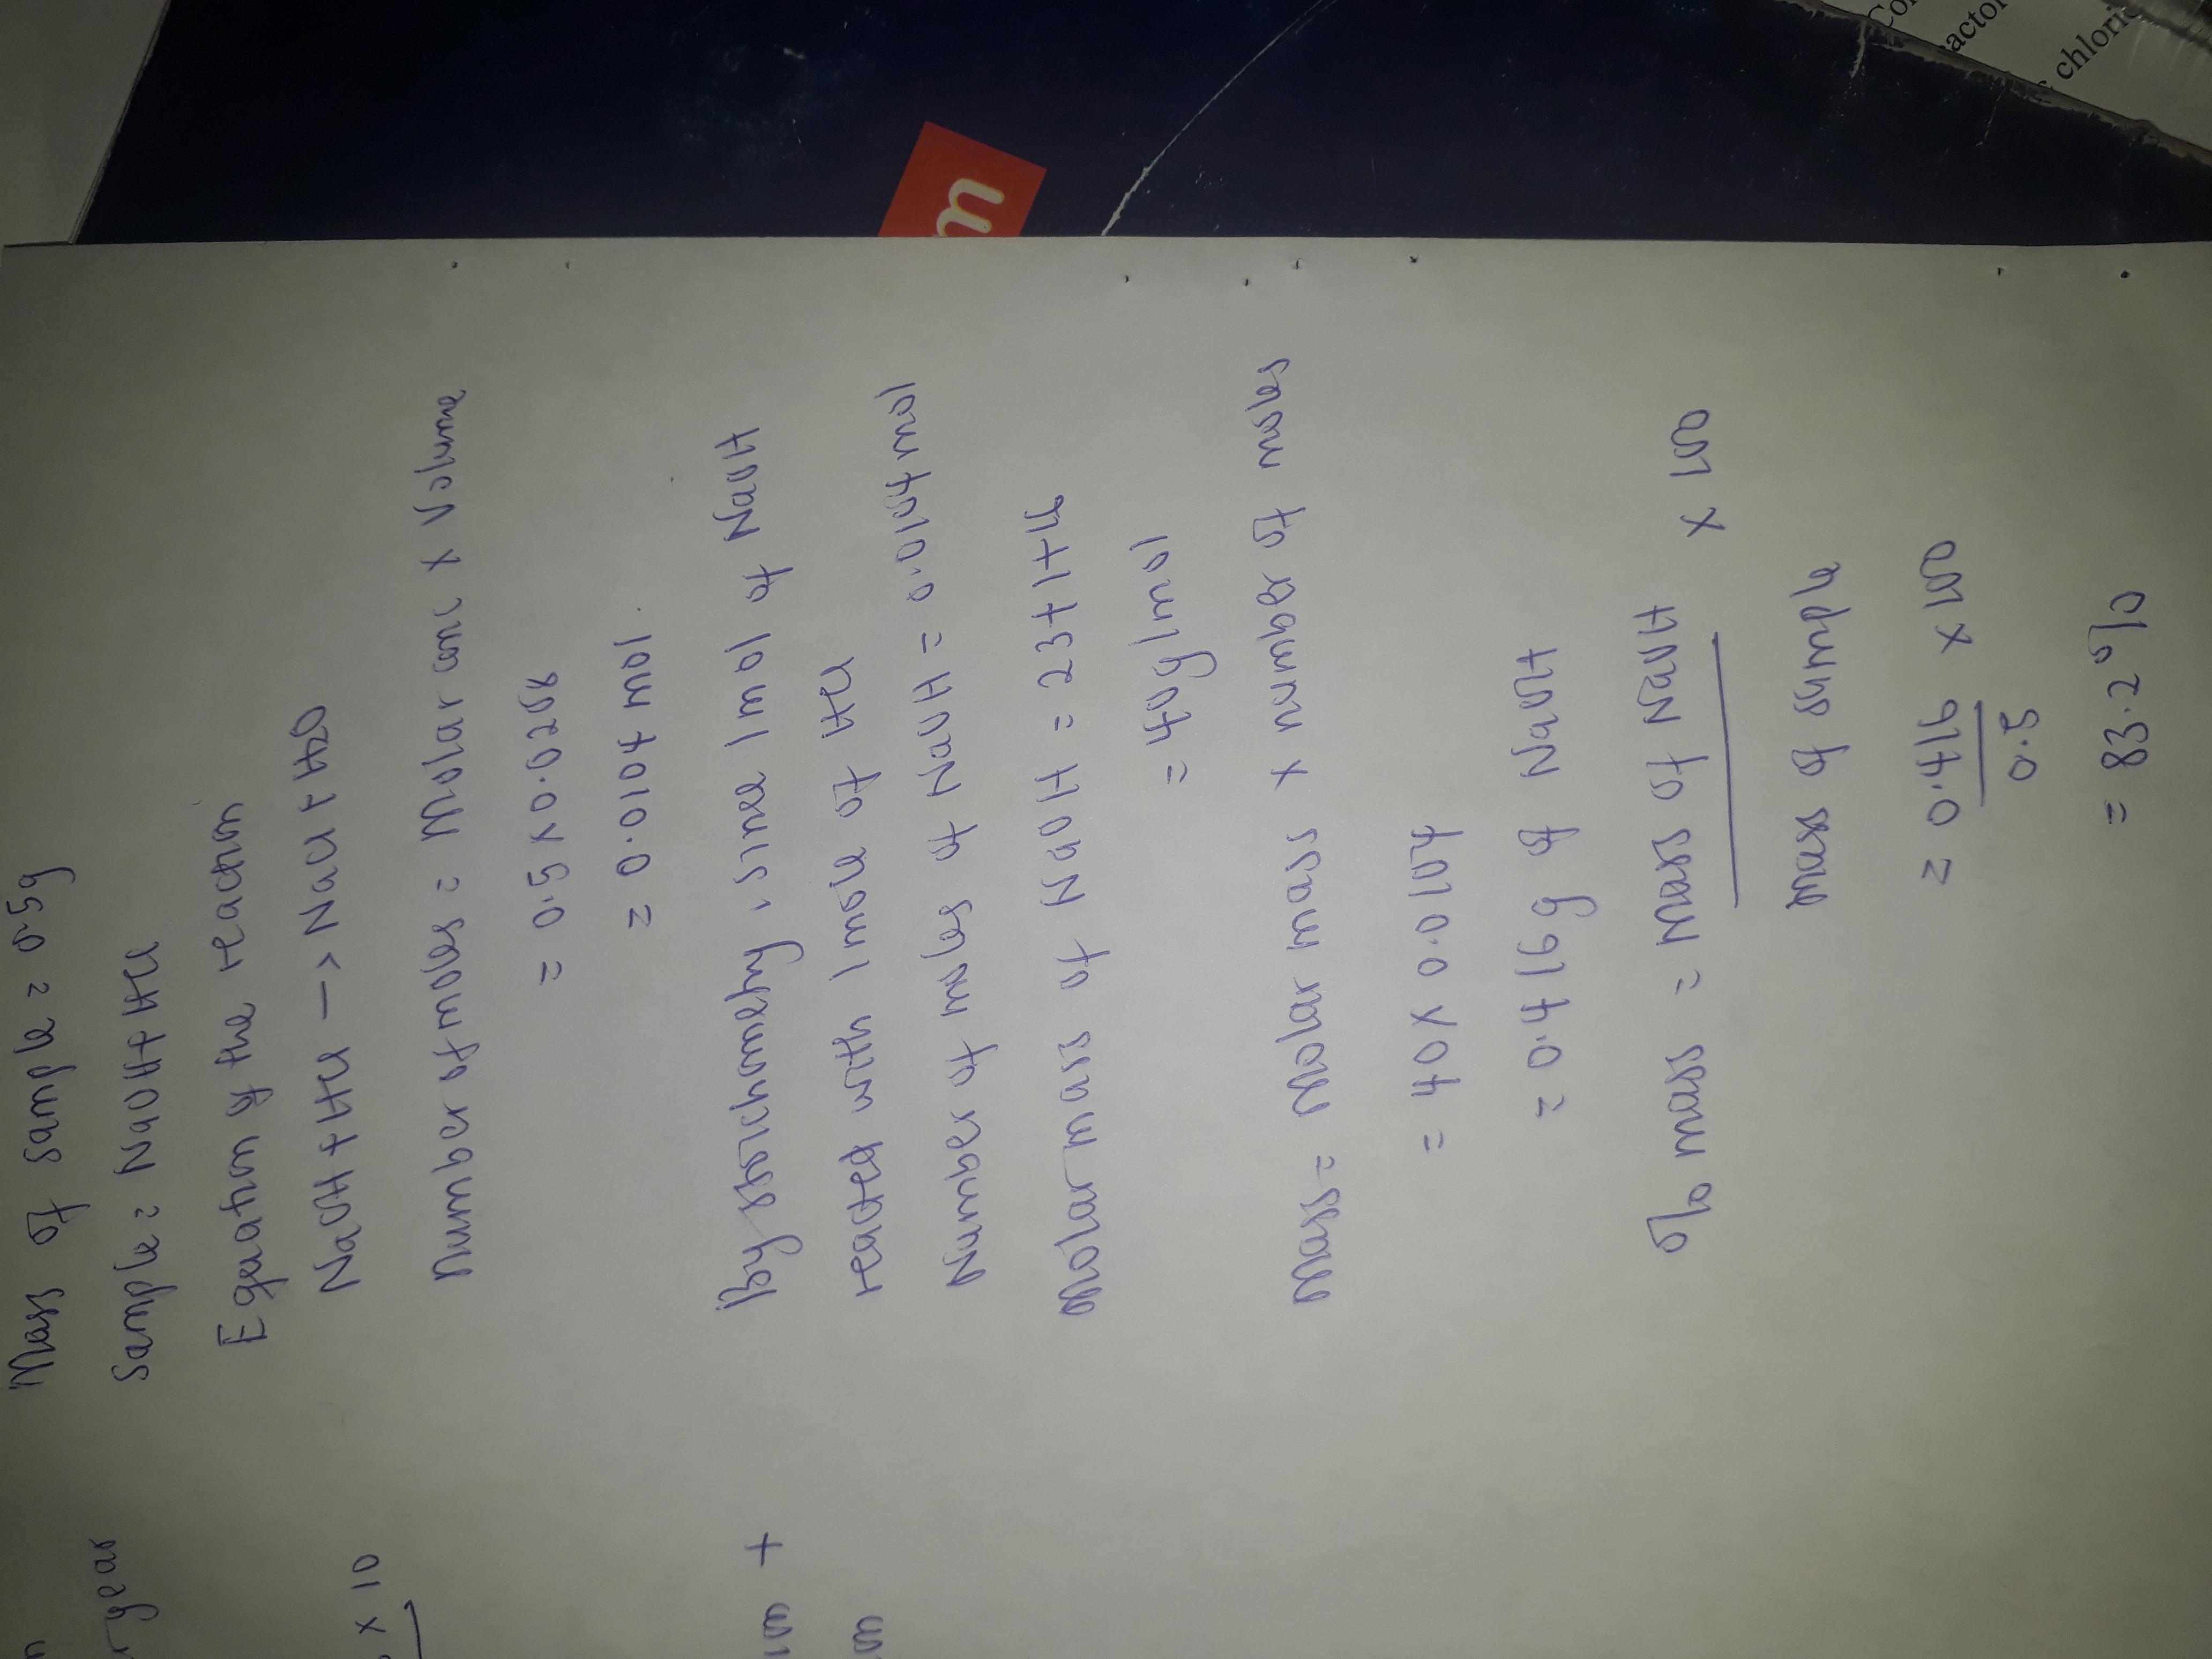 Mass of sample = 0.5g
sample = NaOH + HCl
Equation of the reaction
NaOH + HCl —> NaCl + H2O
Number of moles = Molar conc x Volume
= 0.5 x 0.0208
= 0.0104 mol
By stoichometry, since 1 mol of NaOH
reacted with 1 mole of HCl
Number of moles of NaOH = 0.0104 mol
Molar mass of NaOH = 23+1+16
= 40g/mol
Mass = Molar mass x number of moles
= 40 x 0.0104
= 0.416g of NaOH
% mass = Mass of NaOH x 100
mass of sample
= 0.416 x 100
0.5
= 83.2%
year
x 10
+
m
Co
actor
chloric